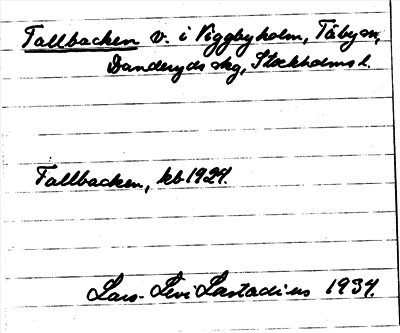 Tallbacken v. i Viggbyholm, Täby sn,
Danderyds skg, Stockholms l.
Tallbacken, kb 1929.
Lars-Levi Læstadius 1934.